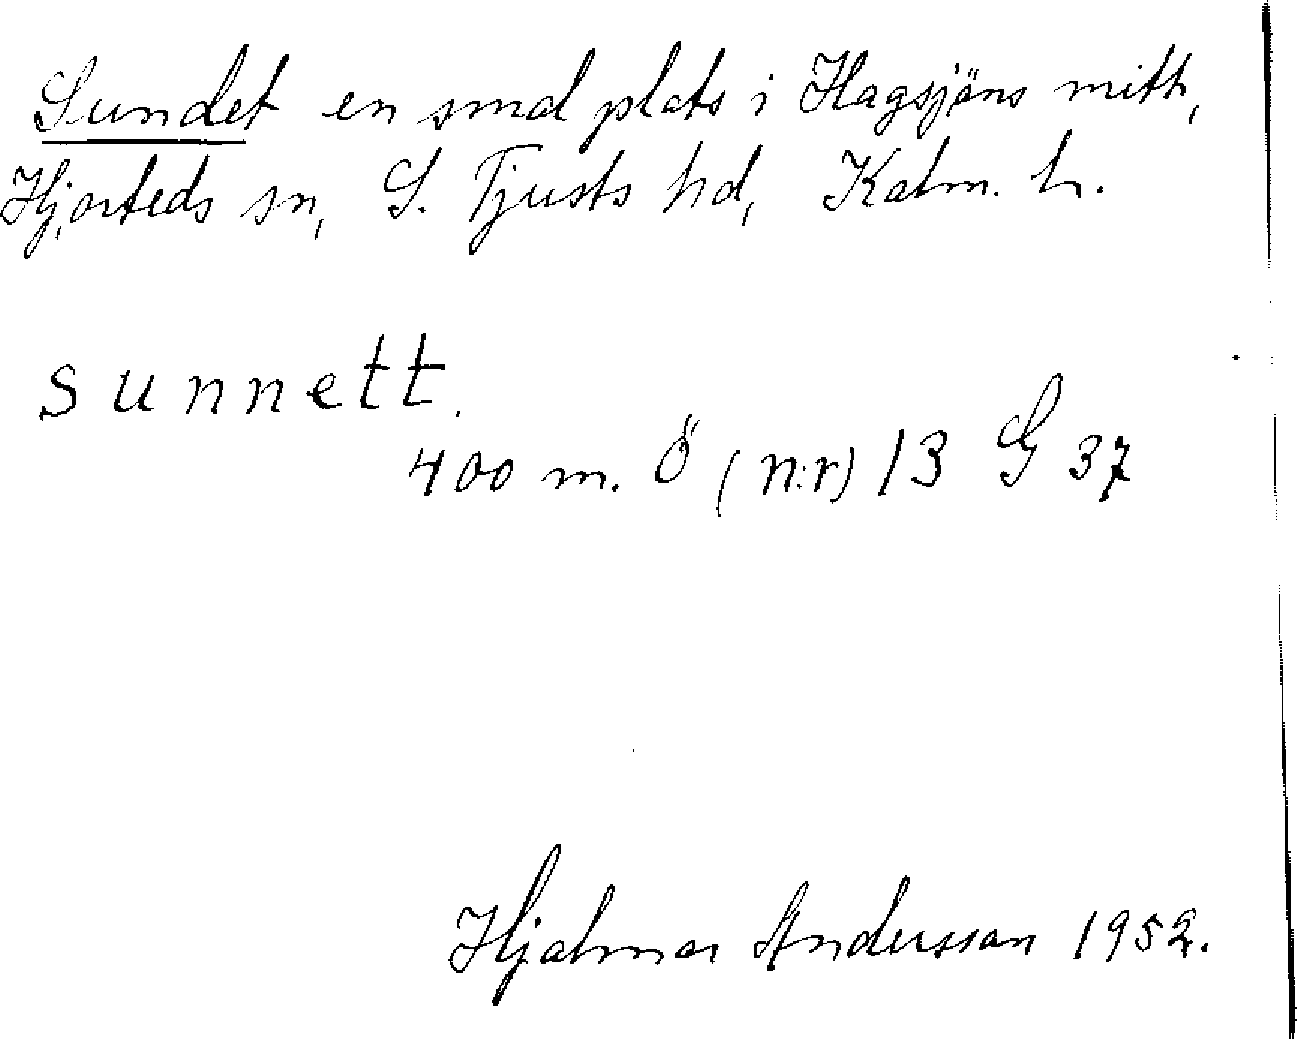 Sundet en smal plats i Hagsjöns mitt,
Hjorteds sn, S. Tjusts hd, Kalm. l.
sunnett.
400 m. Ö (n:r) 13 G 37
Hjalmar Andersson 1952.